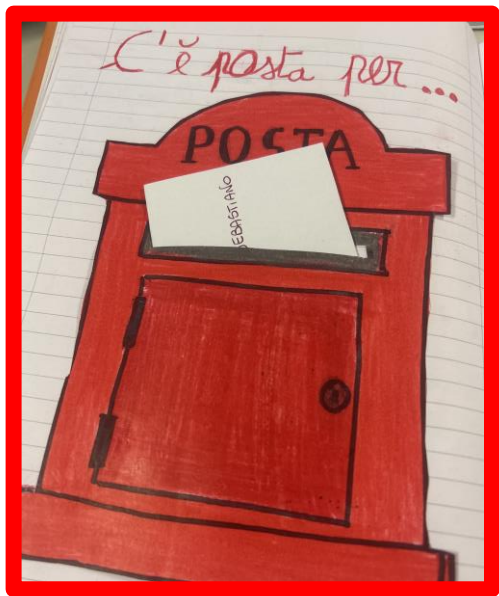 C'è posta per...
POSTA
SEBASTIANO